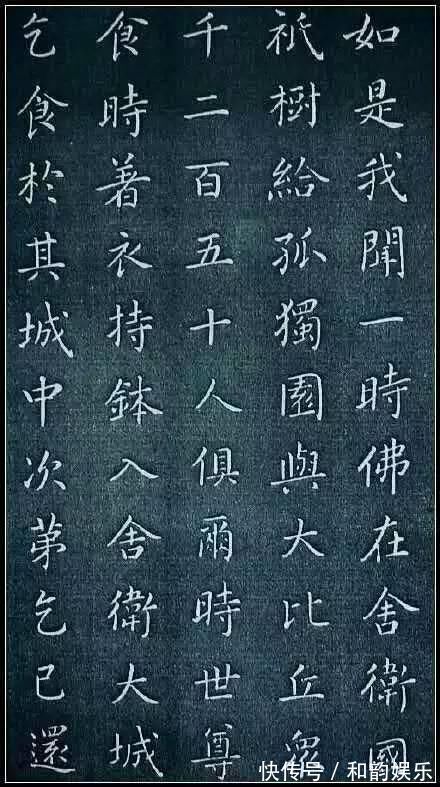 如是我聞一時佛在舍衛國
祇樹給孤獨園與大比丘眾
千二百五十人俱爾時世尊
食時著衣持鉢入舍衛大城
乞食於其城中次第乞已還
快传号 / 和韵娱乐